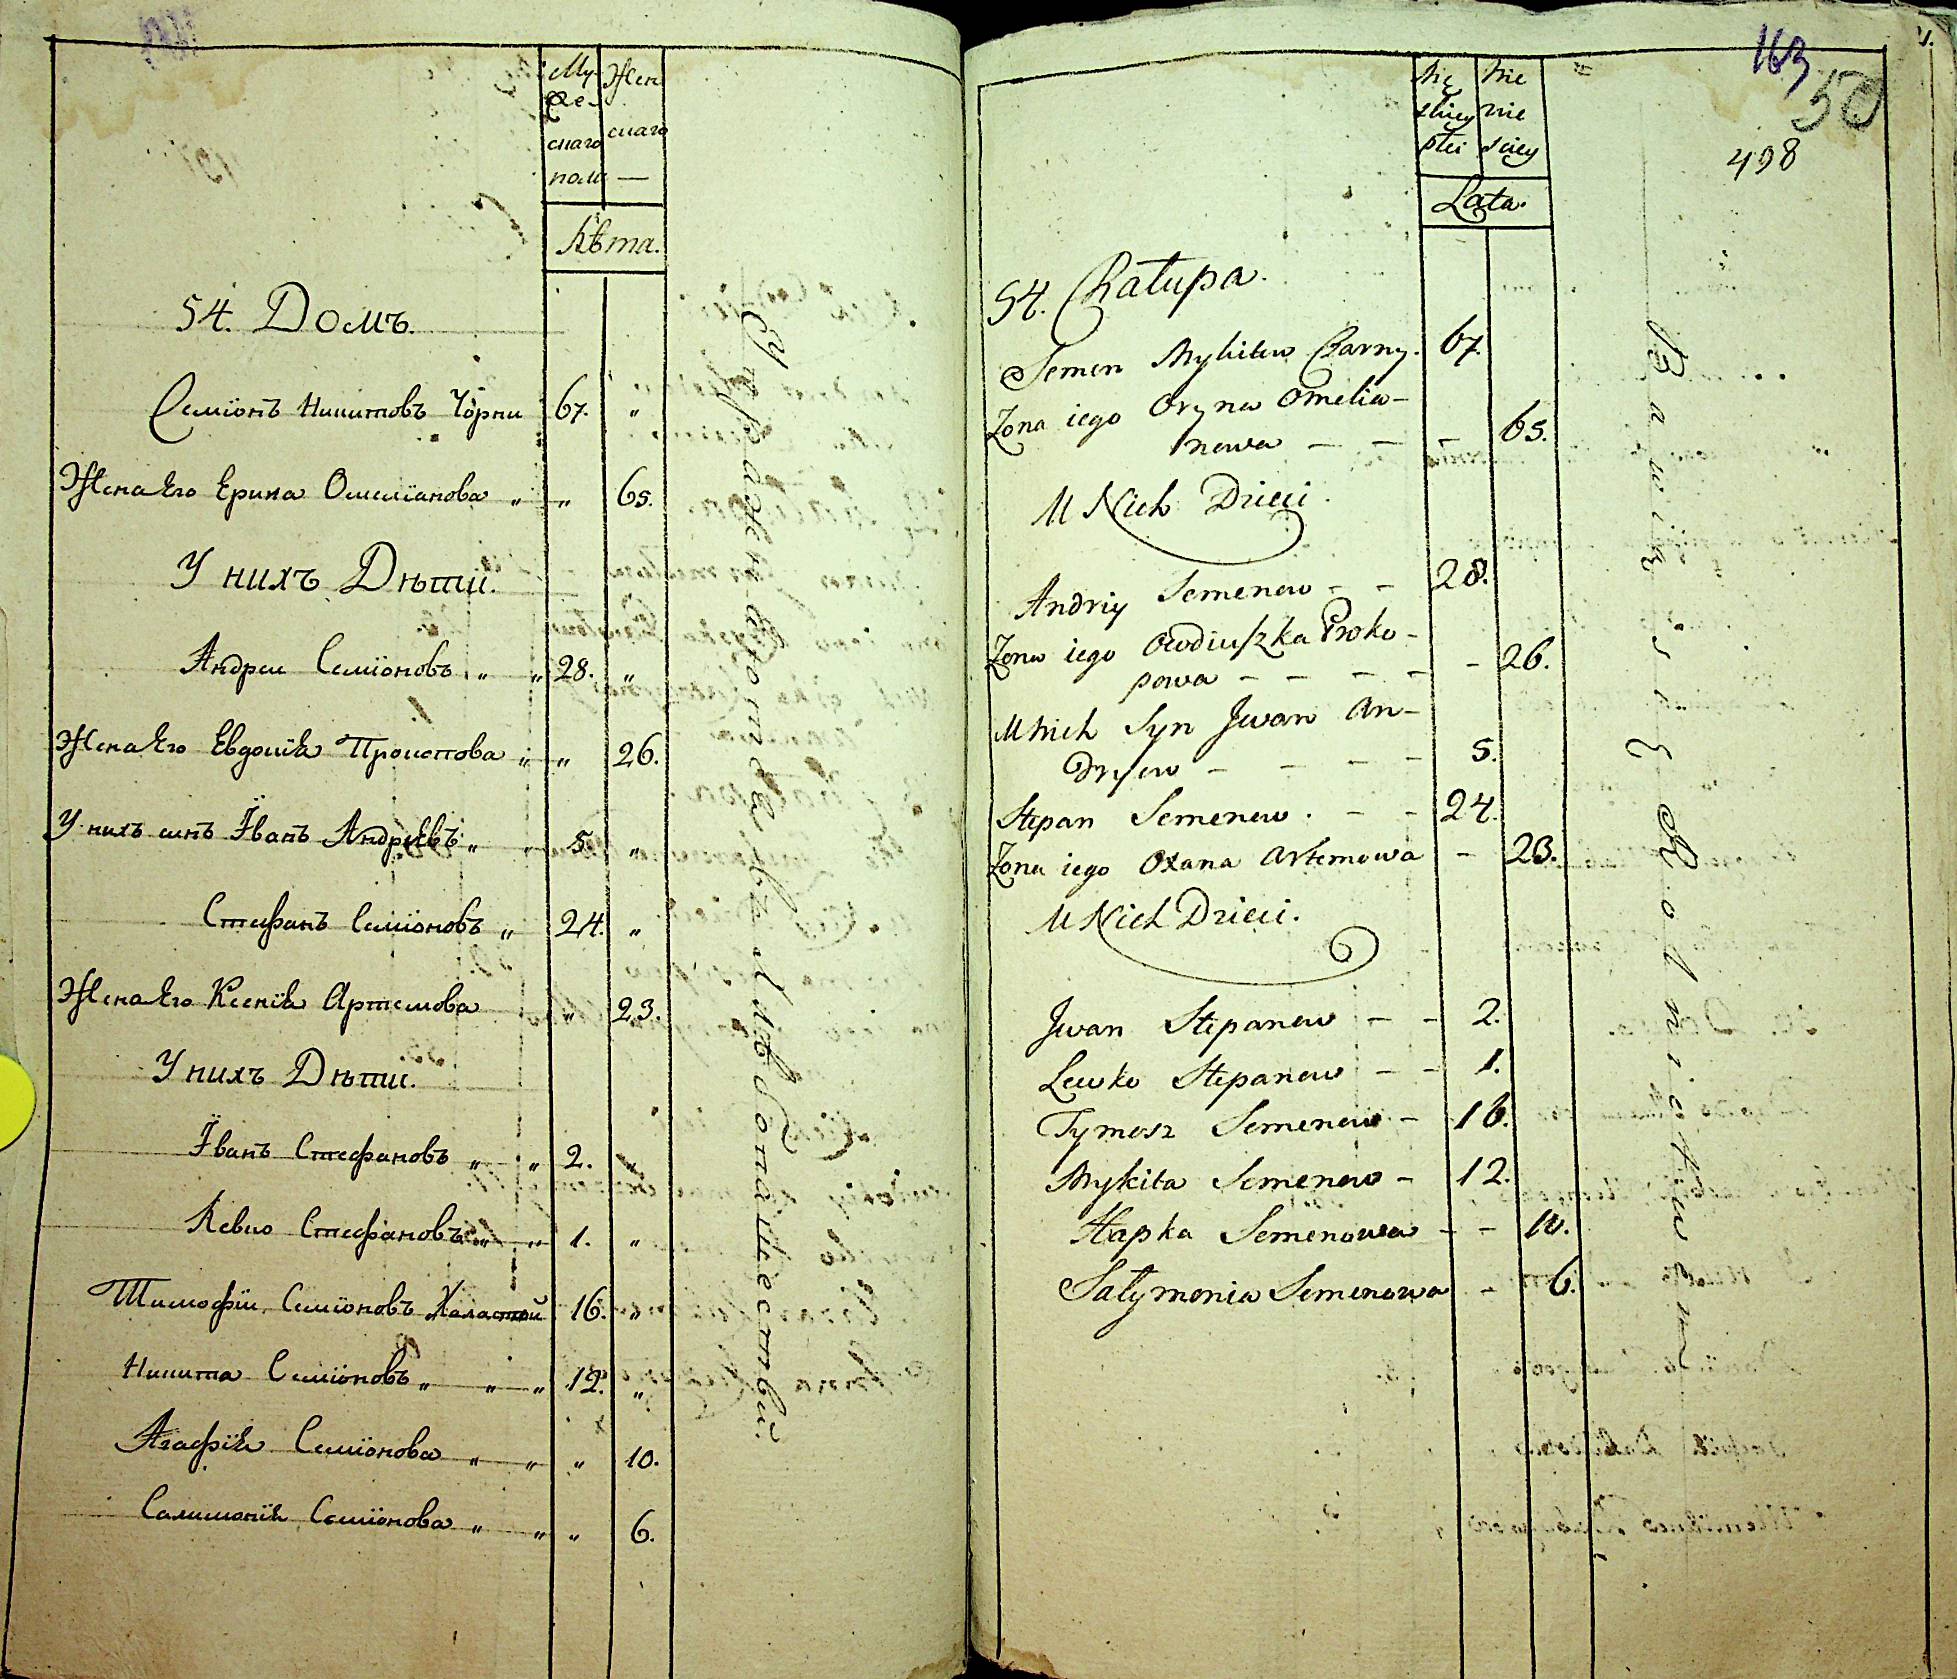 Му-
же-
скаго
полu
Жен
скаго
—
Лѣта.
54. Домъ.
Семїонъ Никитовъ Чорни 67. „
Жена Его Ерина Омелїанова „ „ 65.
У нихъ Дѣти.
Андреи Семїоновъ „ „ 28. „
Жена Его Евдокїѧ Прокопова „ „ 26.
У нихъ синъ Їванъ Андрѣевъ „ „ 5. „
Стефанъ Семїоновъ „ 24. „
Жена Его Ксенїѧ Артемова „ 23.
У нихъ Дѣти.
Їванъ Стефановъ „ „ 2. „
Левко Стефановъ „ „ 1. „
Тимофїи Семїоновъ Халастой 16. „
Никита Семїоновъ „ „ „ 12. „
Агафїѧ Семїонова „ „ „ 10.
Салимонїѧ Семїонова „ „ „ 6.
Упражняются въ хлѣбопашествѣ.
163
50
498
Mę
skiey
płci
Nie
wie
sciey
Lata.
54. Chałupa.
Semen Mykitew Czarny. 67.
Zona iego Oryna Omelia-
nowa — — — 65.
U Nich Dzieci.
Andriy Semenow — — 28.
Zona iego Owdiuszka Proko-
powa — — — — — 26.
U nich Syn Jwan An-
dryiew — — — — 5.
Stepan Semenow. — — 24.
Zona iego Oxana Artemowa — 23.
U Nich Dzieci.
Jwan Stepanow — — 2.
Lewko Stepanow — — 1.
Tymosz Semenow — 16.
Mykita Semenow — 12.
Hapka Semenowa — — 10.
Sałymonia Semenowa — 6.
Bawią się Rolnictwem